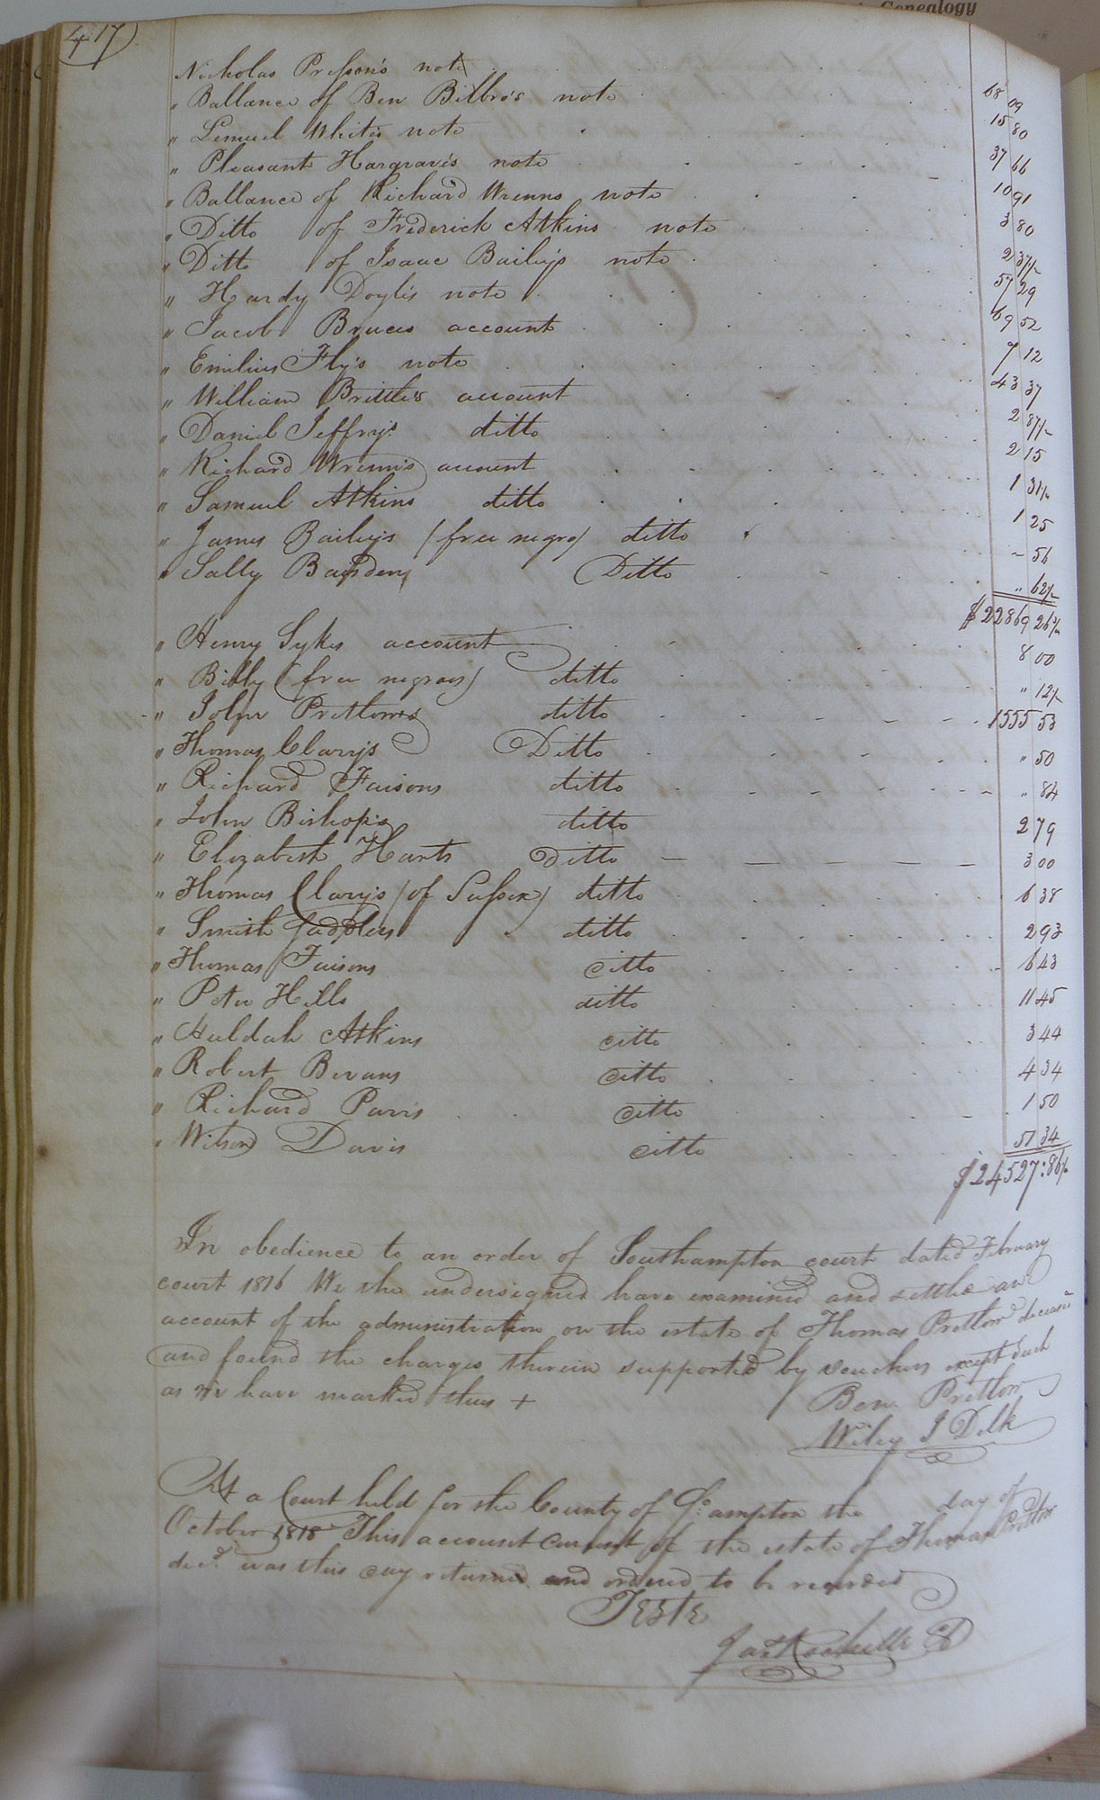 Genealogy
417
Nicholas Presson's note 68 09
" Ballance of Ben Bilbro's note 15 80
" Lemuel White's note 37 66
" Pleasant Hargrave's note 10 91
" Ballance of Richard Wrenns note 3 80
" Ditto of Frederick Atkins note 2 37½
" Ditto of Isaac Bailey's note 57 29
" Hardy Doyle's note 69 52
" Jacob Bruces account 7 12
" Emilius Fly's note 43 37
" William Brittles account 2 87½
" Daniel Jeffry's ditto 2 15
" Richard Wrenn's account 1 31½
" Samuel Atkins ditto 1 25
" James Bailey's (free negro) ditto - 56
" Sally Ditto " 62½
$22869 26½
" Henry Sykes account 8 00
" Billy (free negroes) ditto " 12½
" John Pretlow's ditto 1555 53
" Thomas Clary's Ditto " 50
" Richard Faisons ditto " 84
" John Bishop's ditto 2 79
" Elizabeth Harts Ditto 3 00
" Thomas Clary's (of Sussex) ditto 6 38
" Smith ditto 2 93
" Thomas Faisons ditto 6 43
" Peter Hills ditto 11 45
" Huldah Atkins ditto 3 44
" Robert Bevans ditto 4 34
" Richard Parris ditto 1 50
" Wilson Davis ditto 51 34
$24527:86½
In obedience to an order of Southampton court dated February
court 1816 We the undersigned have examined and settled an
account of the administration on the estate of Thomas Pretlow deceasd
and found the charges therein supported by vouchers except such
as we have marked thus +
Ben. Pretlow
Wiley J Delk
At a Court held for the County of So.ampton the day of
October 1818 This account current of the estate of Thomas Pretlow
decd. was this day returned and ordered to be recorded
Teste
Jas Rochelle